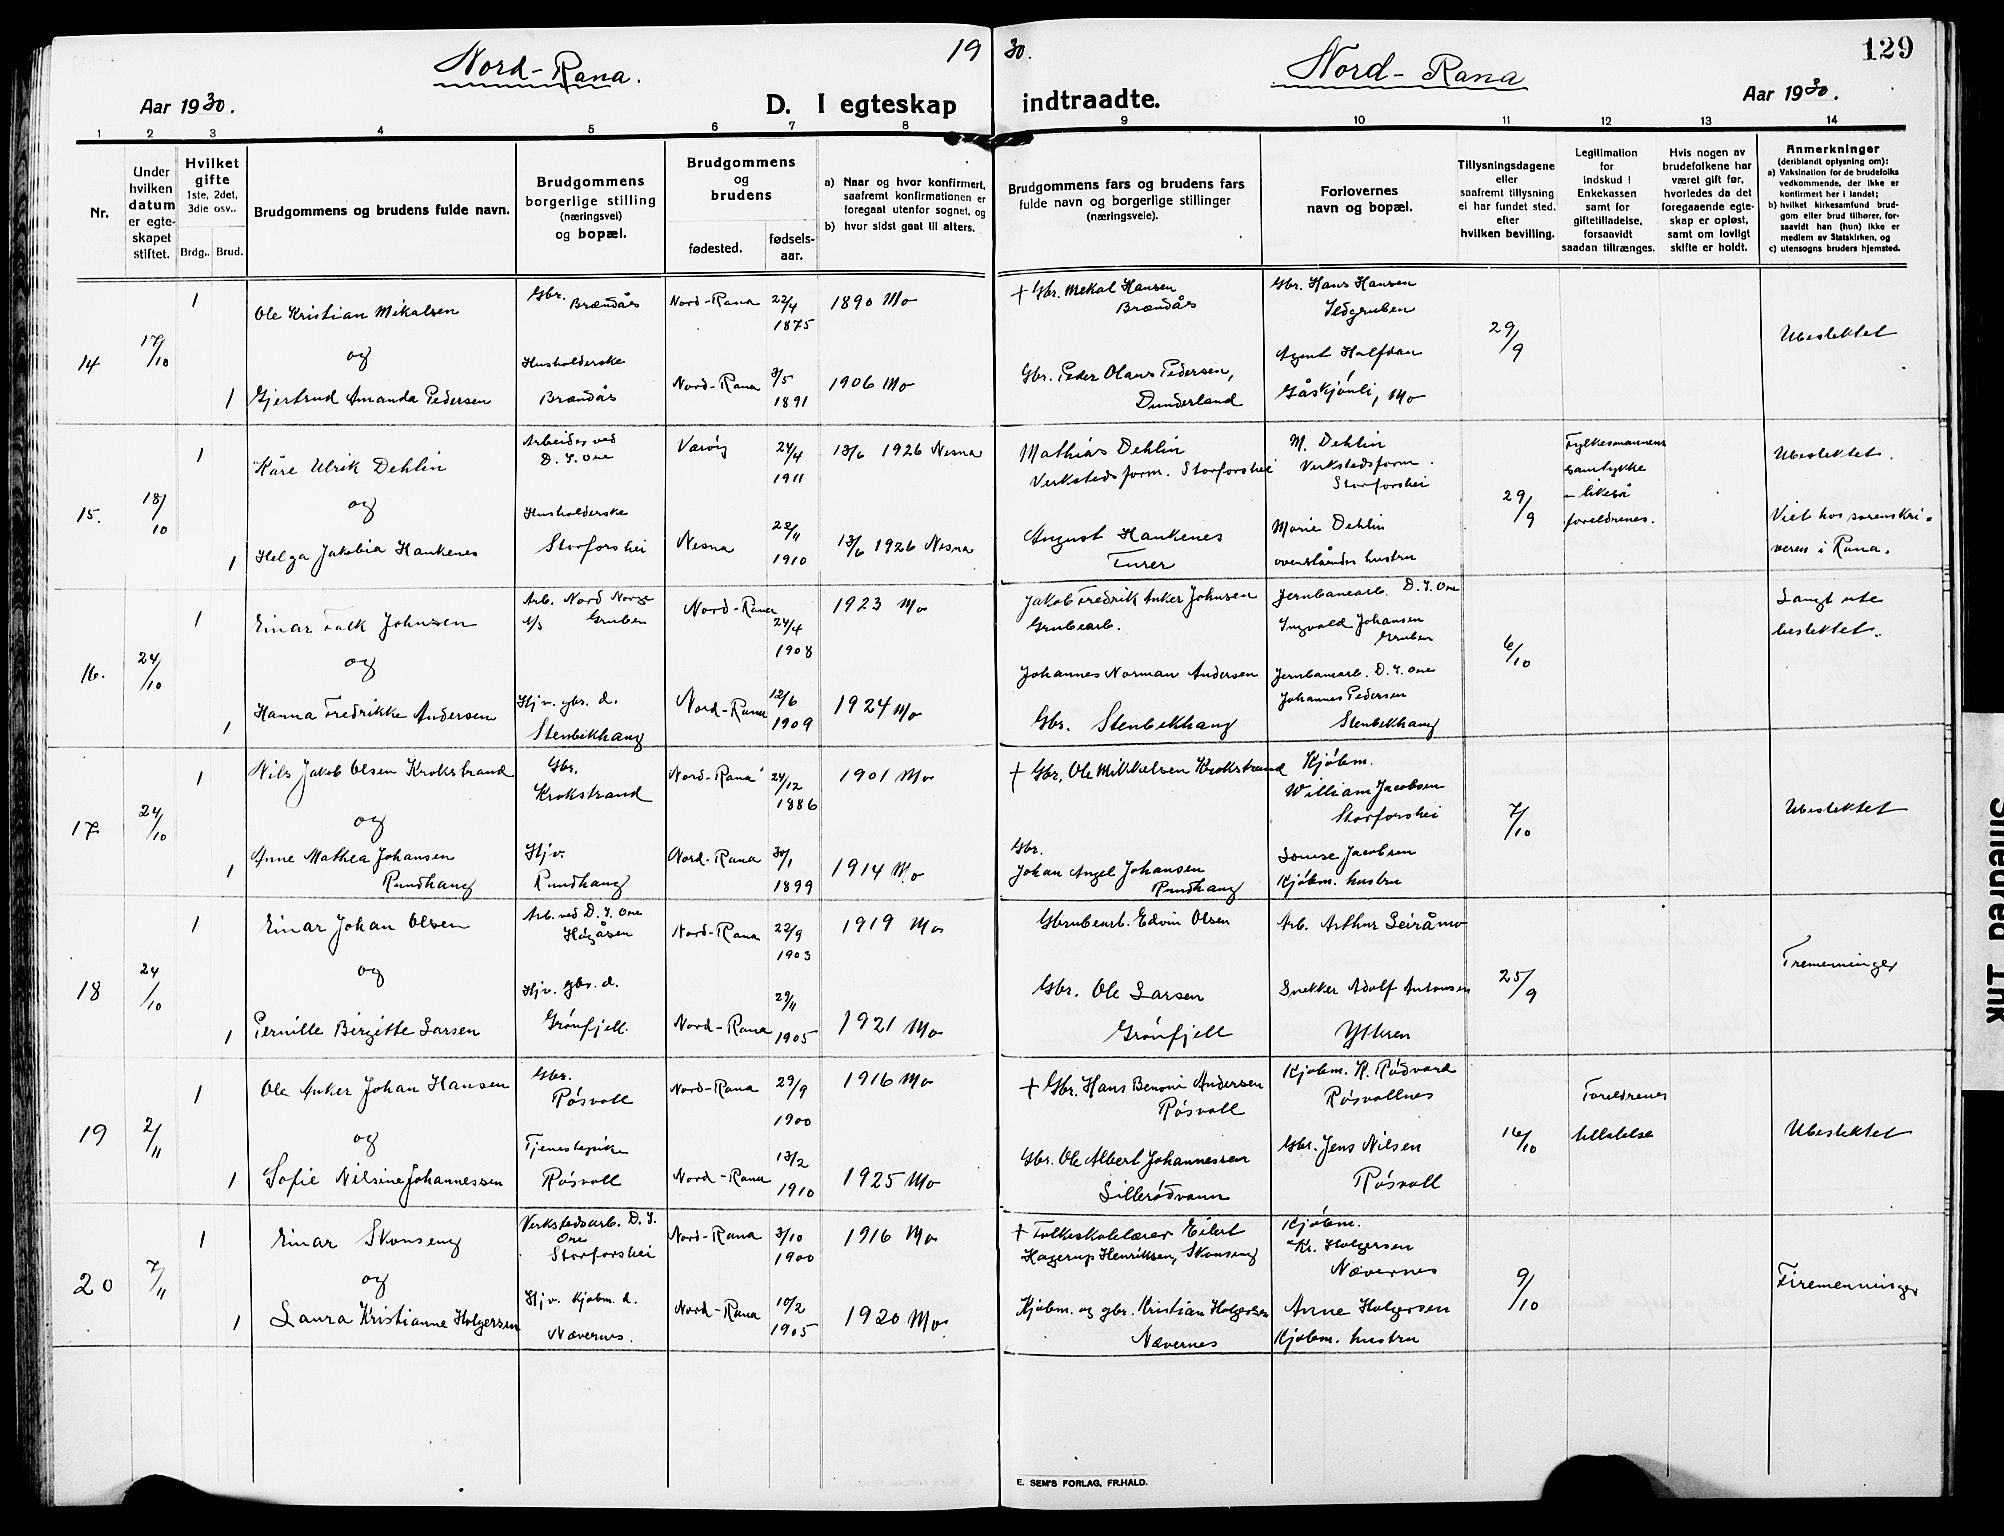 Nord-Rana.
19
30.
Nord-Rana
129
Aar 1930.
D. I egteskap
indtraadte.
Aar 1930.
1 2 3 4 5 6 7 8 9 10 11 12 13 14
Nr.
Under hvilken datum er egteskapet stiftet.
Hvilket gifte
1ste, 2det, 3die osv..
Brdg.. Brud.
Brudgommens og brudens fulde navn.
Brudgommens borgerlige stilling (næringsvei) og bopæl.
Brudgommens og brudens
fødested.
fødsels-aar.
a) Naar og hvor konfirmert, saafremt konfirmationen er foregaat utenfor sognet, og
b) hvor sidst gaat til alters.
Brudgommens fars og brudens fars fulde navn og borgerlige stillinger (næringsveie).
Forlovernes navn og bopæl.
Tillysningsdagene eller saafremt tillysning ei har fundet sted. efter hvilken bevilling.
Legitimation for indskud i Enkekassen samt for giftetilladelse, forsaavidt saadan tiltrænges.
Hvis nogen av brudefolkene har været gift før, hvorledes da det foregaaende egteskap er opløst, samt om lovligt skifte er holdt.
Anmerkninger
(deriblandt oplysning om):
a) Vaksination for de brudefolks vedkommende, der ikke er konfirmert her i landet;
b) hvilket kirkesamfund brudgom eller brud tilhører, forsaavidt han (hun) ikke er medlem av Statskirken, og
c) utensogns bruders hjemsted.
14
17/10
1
Ole Kristian Mikalsen
Gbr. Brændås
Nord-Rana
22/4 1875
1890 Mo
+ Gbr. Mekal Hansen Brændås
Gbr. Hans Hansen Ildgruben
29/9
Ubeslektet
og
1
Gjertrud Amanda Pedersen
Husholderske Brændås
Nord-Rana
3/5 1891
1906 Mo
Gbr. Peder Olaus Pedersen, Dunderland
Agent Halfdan Gåskjønli, Mo
15.
18/10
1
Kåre Ulrik Dehlin
Arbeider ved D. I. Ore
Værøy
24/4 1911
13/6 1926 Nesna
Mathias Dehlin Verkstedsform. Storforshei
M. Dehlin Verkstedsform. Storforshei
29/9
Fylkesmannens samtykke - likeså foreldrenes.
Ubeslektet.
Viet hos sorenskriveren i Rana.
og
1
Helga Jakobia Haukenes
Husholderske Storforshei
Nesna
22/11 1910
13/6 1926 Nesna
August Haukenes
Marie Dehlin ovenståendes hustru
16.
24/10
1
Einar Falk Johnsen
Arb. Nord Norge A/S Gruben
Nord-Rana
24/4 1908
1923 Mo
Jakob Fredrik Anker Johnsen Grubearb.
Jernbanearb. D. I. Ore Ingvald Johansen Gruben
6/10
Langt ute beslektet.
og
1
Hanna Fredrikke Andersen
Hjv. gbr. d. Stenbekhaug
Nord-Rana
12/6 1909
1924 Mo
Johannes Norman Andersen
Gbr. Stenbekhaug
Jernbanearb. D. I. Ore Johannes Pedersen Stenbekhaug
17
24/10
1
Nils Jakob Olsen Krokstrand
Gbr. Krokstrand
Nord-Rana
24/12 1886
1901 Mo
+ Gbr. Ole Mikkelsen Krokstrand
Kjøbm. William Jacobsen Storforshei
7/10
Ubeslektet
og
1
Anne Mathea Johansen Rundhaug
Hjv. Rundhaug
Nord-Rana
30/1 1899
1914 Mo
Gbr. Johan Angel Johansen Rundhaug
Louise Jacobsen Kjøbm. hustru
18
24/10
1
Einar Johan Olsen
Arb. ved D. I. Ore Høgåsen
Nord-Rana
22/9 1903
1919 Mo
Gbrubearb. Edvin Olsen
Arb. Arthur Leiråmo
25/9
Tremenninger
og
1
Pernille Birgitte Larsen
Hjv. gbr. d. Grønfjell
Nord-Rana
29/11 1905
1921 Mo
Gbr. Ole Larsen Grønfjell
Snekker Adolf Antonsen Ytteren
19
2/11
1
Ole Anker Johan Hansen
Gbr. Røsvoll
Nord-Rana
29/9 1900
1916 Mo
+ Gbr. Hans Benoni Andersen Røsvoll
Kjøbm. K. Rødvard Røsvollnes
16/10
Foreldrenes tillatelse
Ubeslektet
og
1
Sofie Nilsine Johannessen
Tjenestepike Røsvoll
Nord-Rana
13/2 1910
1925 Mo
Gbr. Ole Albert Johannessen Lillerødvann
Gbr. Jens Nilsen Røsvoll
20
7/11
1
Einar Skonseng
Verkstedsarb. D. I. Ore Storforshei
Nord-Rana
3/10 1900
1916 Mo
+ Folkeskolelærer Eilert Hagerup Henriksen, Skonseng
Kjøbm. Kr. Holgersen Nævernes
9/10
Firemenninger
og
1
Laura Kristianne Holgersen
Hjv. Kjøbm. d. Nævernes.
Nord-Rana
10/2 1905
1920 Mo
Kjøbm. og gbr. Kristian Holgersen Nævernes
Anne Holgersen Kjøbm. hustru
E. SEM'S FORLAG, FR.HALD.